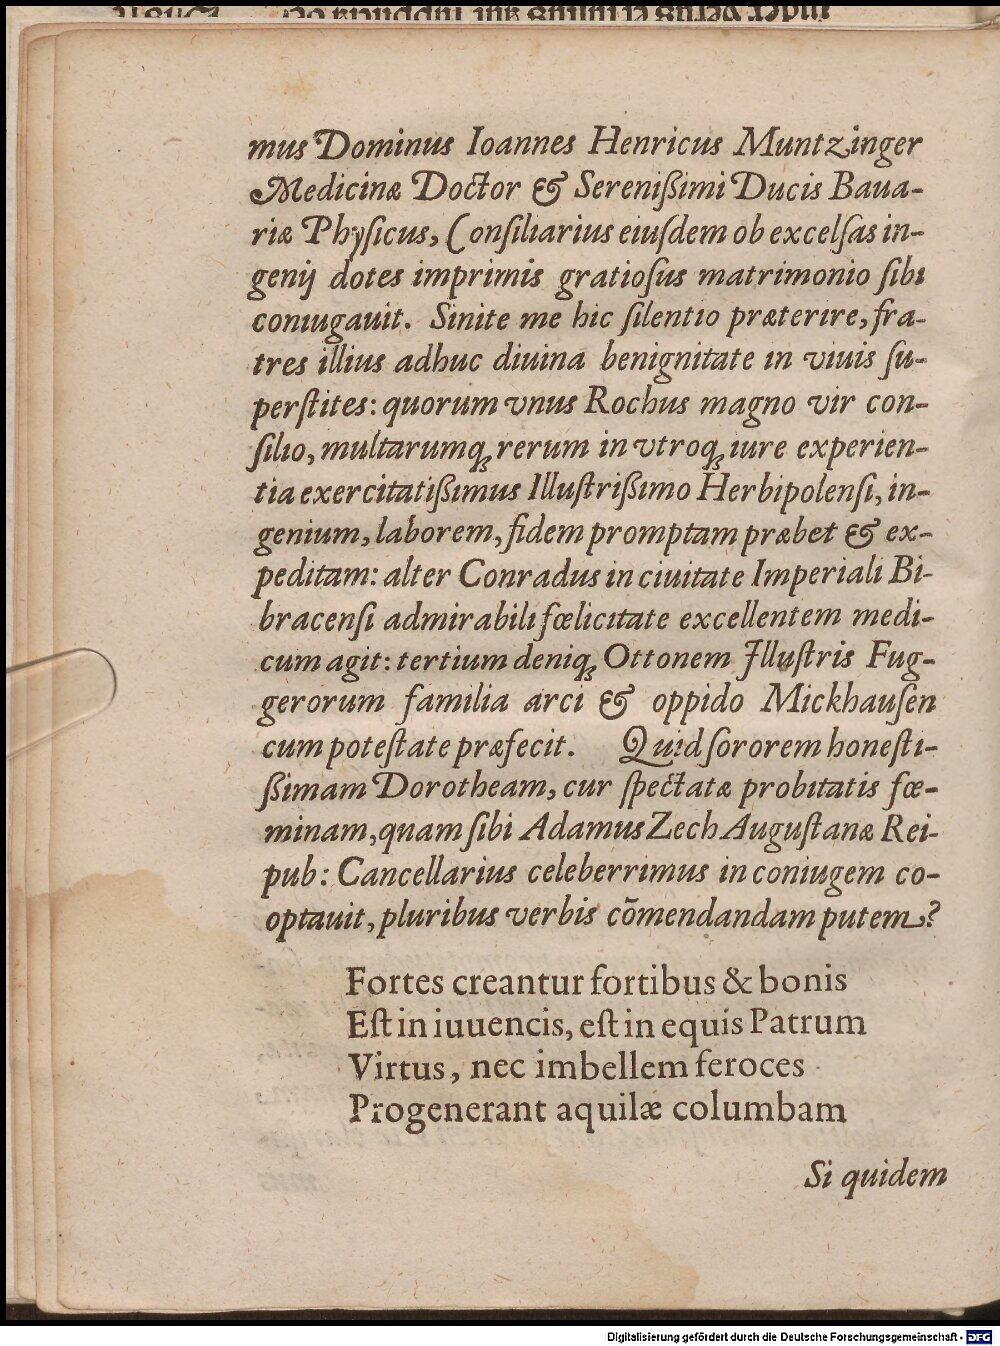 mus Dominus Ioannes Henricus Muntzinger
Medicinæ Doctor & Sereniſsimi Ducis Baua-
riæ Phyſicus, Conſiliarius eiuſdem ob excelſas in-
genij dotes imprimis gratioſus matrimonio ſibi
coniugauit. Sinite me hic ſilentio præterire, fra-
tres illius adhuc diuina benignitate in viuis ſu-
perſtites: quorum vnus Rochus magno vir con-
ſilio, multarumq́ꝫ rerum in vtroqꝫ iure experien-
tia exercitatiſsimus Illuſtriſsimo Herbipolenſi, in-
genium, laborem, fidem promptam præbet & ex-
peditam: alter Conradus in ciuitate Imperiali Bi-
bracenſi admirabili fœlicitate excellentem medi-
cum agit: tertium deniqꝫ Ottonem Illuſtris Fug-
gerorum familia arci & oppido Mickhauſen
cum poteſtate præfecit. Quid ſororem honeſti-
ſsimam Dorotheam, cur ſpectatæ probitatis fœ-
minam, quam ſibi Adamus Zech Auguſtanæ Rei-
pub: Cancellarius celeberrimus in coniugem co-
optauit, pluribus verbis cõmendandam putem?
Fortes creantur fortibus & bonis
Eſt in iuuencis, eſt in equis Patrum
Virtus, nec imbellem feroces
Progenerant aquilæ columbam
Si quidem
Digitalisierung gefördert durch die Deutsche Forschungsgemeinschaft - DFG